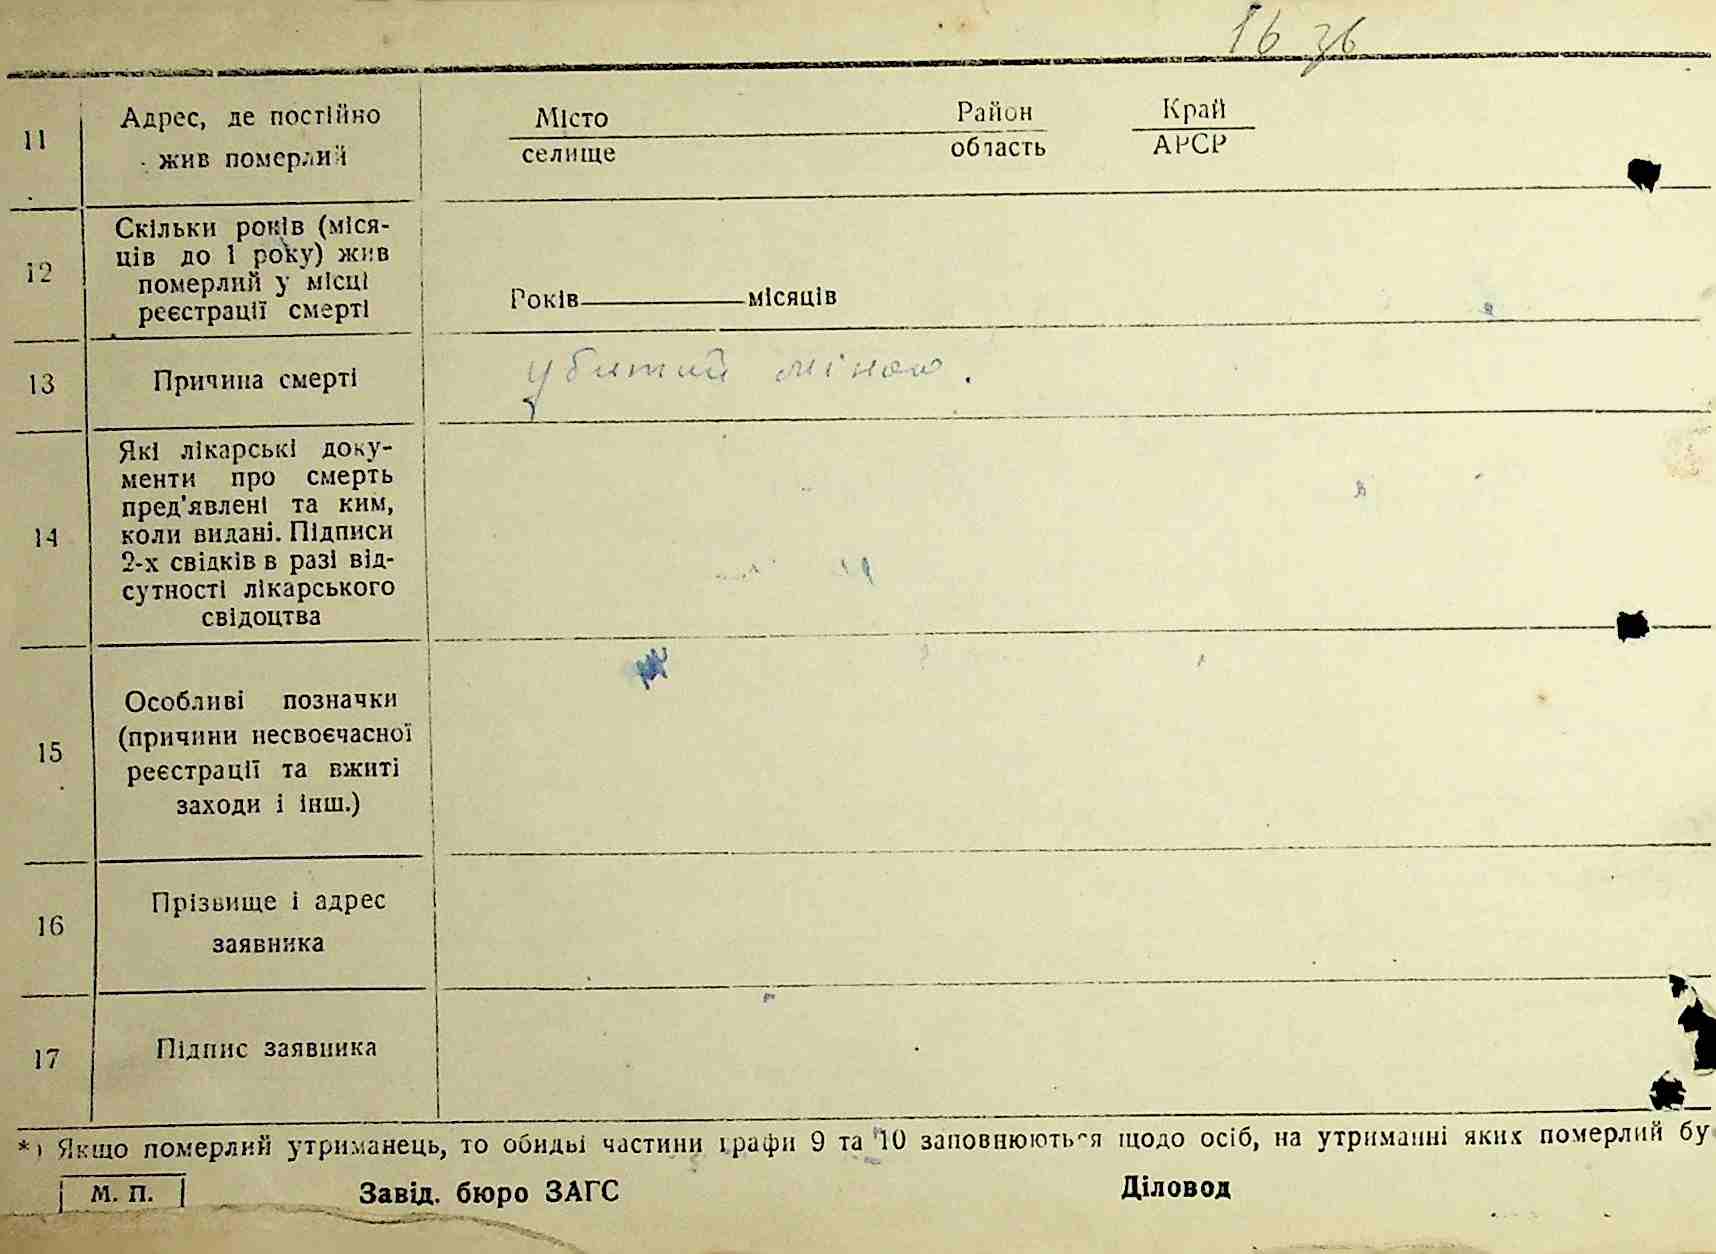 16 зв
11
Адрес, де постійно
жив померлий
Місто
селище
Район
область
Край
АРСР
12
Скільки років (міся-
ців до 1 року) жив
померлий у місці
реєстрації смерті
Років
місяців
13
Причина смерті
убитий міною.
14
Які лікарські доку-
менти про смерть
пред'явлені та ким,
коли видані. Підписи
2-х свідків в разі від-
сутності лікарського
свідоцтва
15
Особливі позначки
(причини несвоєчасної
реєстрації та вжиті
заходи і інш.)
16
Прізвище і адрес
заявника
17
Підпис заявника
*) Якщо померлий утриманець, то обидві частини графи 9 та 10 заповнюються щодо осіб, на утриманні яких померлий бу
М. П.
Завід. бюро ЗАГС
Діловод